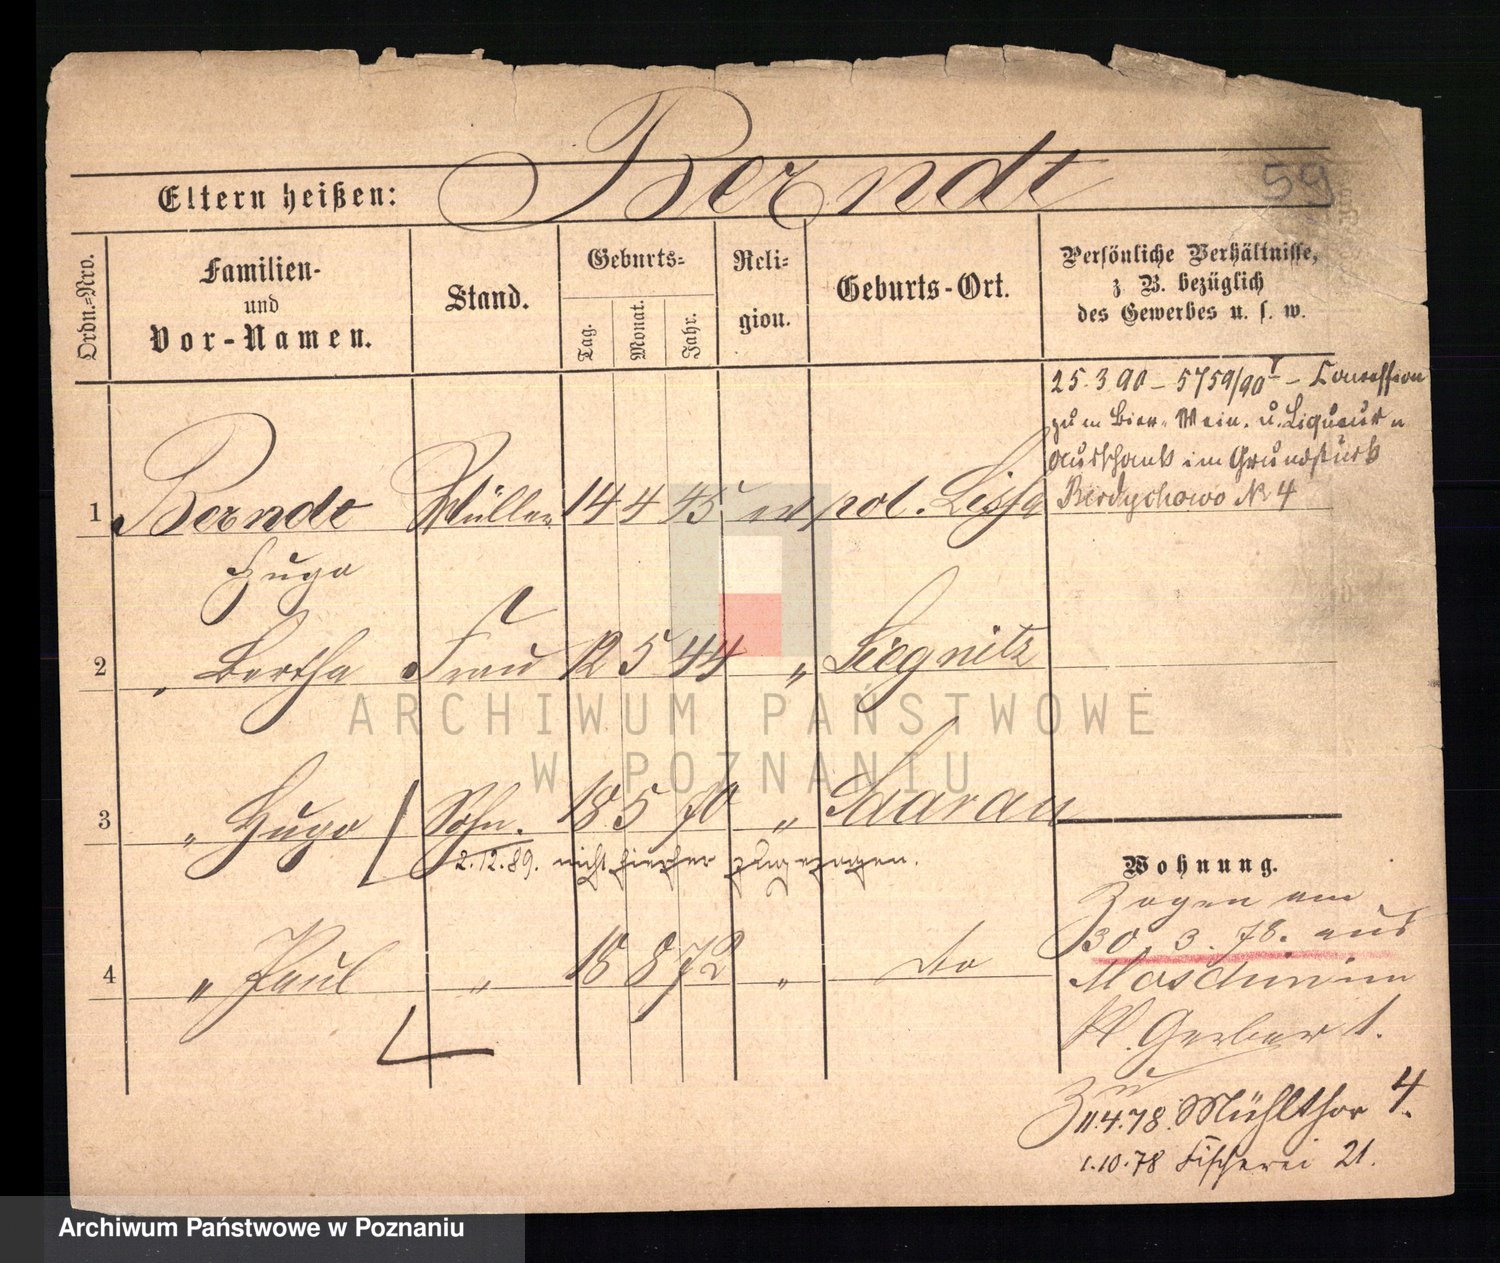 59
Eltern heißen: Berndt
Ordn.=Nro.
Familien-
und
Vor-Namen.
Stand.
Geburts=
Tag.
Monat.
Jahr.
Reli=
gion.
Geburts-Ort.
Persönliche Verhältnisse,
z B. bezüglich
des Gewerbes u. s. w.
25.3 90 – 5759/90 I – Concession
zum Bier- Wein- u. Liqueur
Ausschank im Grundstück
Berdychowo № 4
1 Berndt Müller 14 4 45 ev. pol. Lissa
Hugo
2 " Bertha Frau 12 5 44 " Liegnitz
3 " Hugo Sohn. 18 5 70 " Saarau
2.12.89. nicht hierher zugezogen.
4 " Paul " 18 8 72 " do
Wohnung.
Zogen am
30. 3. 78. aus
Moschin in
Kl. Gerber 1.
Zu
11.4.78. Mühlthor 4.
1.10.78 Fischerei 21.
ARCHIWUM PAŃSTWOWE
W POZNANIU
Archiwum Państwowe w Poznaniu